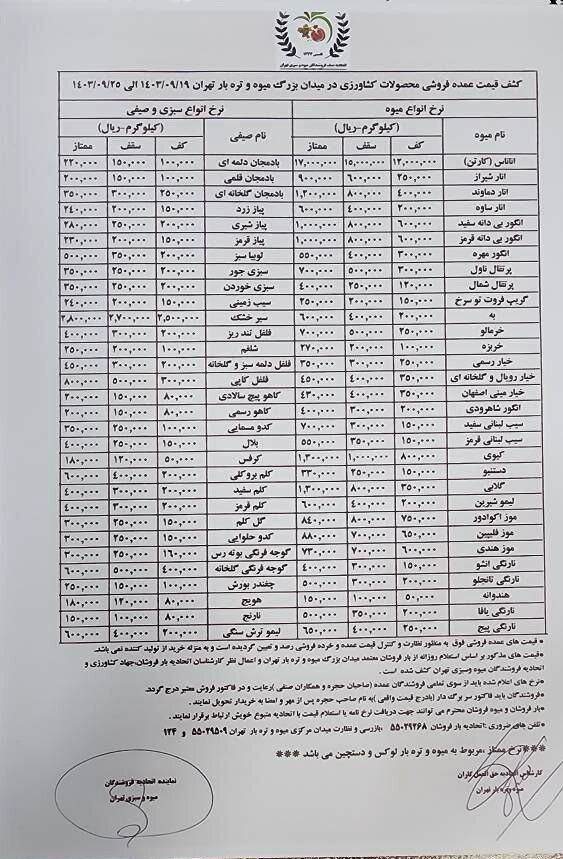 اتحادیه صنف فروشندگان میوه و سبزی تهران
کشف قیمت عمده فروشی محصولات کشاورزی در میدان بزرگ میوه و تره بار تهران ۱۴۰۳/۰۹/۱۹ الی ۱۴۰۳/۰۹/۲۵
نرخ انواع میوه نرخ انواع سبزی و صیفی
نام میوه (کیلوگرم-ریال) نام صیفی (کیلوگرم-ریال)
کف سقف ممتاز کف سقف ممتاز
آناناس (کارتن) ۱۲,۰۰۰,۰۰۰ ۱۵,۰۰۰,۰۰۰ ۱۷,۰۰۰,۰۰۰ بادمجان دلمه ای ۱۰۰,۰۰۰ ۱۵۰,۰۰۰ ۲۲۰,۰۰۰
انار شیراز ۲۵۰,۰۰۰ ۶۰۰,۰۰۰ ۹۰۰,۰۰۰ بادمجان قلمی ۱۰۰,۰۰۰ ۱۵۰,۰۰۰ ۲۰۰,۰۰۰
انار دماوند ۴۰۰,۰۰۰ ۸۰۰,۰۰۰ ۱,۲۰۰,۰۰۰ بادمجان گلخانه ای ۲۵۰,۰۰۰ ۳۰۰,۰۰۰ ۳۵۰,۰۰۰
انار ساوه ۲۰۰,۰۰۰ ۴۰۰,۰۰۰ ۶۰۰,۰۰۰ پیاز زرد ۱۵۰,۰۰۰ ۲۰۰,۰۰۰ ۲۴۰,۰۰۰
انگور بی دانه سفید ۶۰۰,۰۰۰ ۸۰۰,۰۰۰ ۱,۰۰۰,۰۰۰ پیاز شیری ۲۰۰,۰۰۰ ۲۵۰,۰۰۰ ۲۸۰,۰۰۰
انگور بی دانه قرمز ۶۰۰,۰۰۰ ۸۰۰,۰۰۰ ۱,۰۰۰,۰۰۰ پیاز قرمز ۱۵۰,۰۰۰ ۲۰۰,۰۰۰ ۲۳۰,۰۰۰
انگور مهره ۳۰۰,۰۰۰ ۴۰۰,۰۰۰ ۵۵۰,۰۰۰ لوبیا سبز ۲۰۰,۰۰۰ ۳۵۰,۰۰۰ ۵۰۰,۰۰۰
پرتقال ناول ۳۰۰,۰۰۰ ۵۰۰,۰۰۰ ۷۰۰,۰۰۰ سبزی جور ۲۰۰,۰۰۰ ۲۵۰,۰۰۰ ۳۵۰,۰۰۰
پرتقال شمال ۱۲۰,۰۰۰ ۲۵۰,۰۰۰ ۴۰۰,۰۰۰ سبزی خوردن ۲۰۰,۰۰۰ ۲۵۰,۰۰۰ ۳۵۰,۰۰۰
گریپ فروت تو سرخ ۱۵۰,۰۰۰ ۲۰۰,۰۰۰ ۲۵۰,۰۰۰ سیب زمینی ۱۵۰,۰۰۰ ۲۰۰,۰۰۰ ۲۴۰,۰۰۰
به ۲۰۰,۰۰۰ ۴۰۰,۰۰۰ ۶۰۰,۰۰۰ سیر خشک ۲,۵۰۰,۰۰۰ ۲,۷۰۰,۰۰۰ ۲,۸۰۰,۰۰۰
خرمالو ۲۵۰,۰۰۰ ۵۰۰,۰۰۰ ۷۰۰,۰۰۰ فلفل تند ریز ۲۰۰,۰۰۰ ۳۰۰,۰۰۰ ۴۰۰,۰۰۰
خربزه ۱۰۰,۰۰۰ ۲۰۰,۰۰۰ ۲۷۰,۰۰۰ شلغم ۱۰۰,۰۰۰ ۲۰۰,۰۰۰ ۲۵۰,۰۰۰
خیار رسمی ۲۵۰,۰۰۰ ۳۰۰,۰۰۰ ۳۵۰,۰۰۰ فلفل دلمه سبز و گلخانه ۲۰۰,۰۰۰ ۳۰۰,۰۰۰ ۴۵۰,۰۰۰
خیار رویال و گلخانه ای ۳۵۰,۰۰۰ ۴۰۰,۰۰۰ ۴۵۰,۰۰۰ فلفل کاپی ۳۰۰,۰۰۰ ۵۰۰,۰۰۰ ۸۰۰,۰۰۰
خیار مینی اصفهان ۳۵۰,۰۰۰ ۴۰۰,۰۰۰ ۴۳۰,۰۰۰ کاهو پیچ سالادی ۸۰,۰۰۰ ۱۵۰,۰۰۰ ۲۰۰,۰۰۰
انگور شاهرودی ۲۰۰,۰۰۰ ۳۰۰,۰۰۰ ۴۰۰,۰۰۰ کاهو رسمی ۸۰,۰۰۰ ۱۵۰,۰۰۰ ۲۰۰,۰۰۰
سیب لبنانی سفید ۱۵۰,۰۰۰ ۳۰۰,۰۰۰ ۷۰۰,۰۰۰ کدو مسمایی ۱۰۰,۰۰۰ ۲۵۰,۰۰۰ ۳۵۰,۰۰۰
سیب لبنانی قرمز ۱۵۰,۰۰۰ ۳۵۰,۰۰۰ ۵۵۰,۰۰۰ بلال ۱۵۰,۰۰۰ ۲۵۰,۰۰۰ ۴۰۰,۰۰۰
کیوی ۸۰۰,۰۰۰ ۱,۰۰۰,۰۰۰ ۱,۳۰۰,۰۰۰ کرفس ۵۰,۰۰۰ ۱۲۰,۰۰۰ ۱۸۰,۰۰۰
دستنبو ۱۵۰,۰۰۰ ۲۵۰,۰۰۰ ۳۳۰,۰۰۰ کلم بروکلی ۲۰۰,۰۰۰ ۴۰۰,۰۰۰ ۶۰۰,۰۰۰
گلابی ۳۵۰,۰۰۰ ۸۰۰,۰۰۰ ۱,۳۰۰,۰۰۰ کلم سفید ۲۰۰,۰۰۰ ۳۰۰,۰۰۰ ۴۰۰,۰۰۰
لیمو شیرین ۲۰۰,۰۰۰ ۴۰۰,۰۰۰ ۶۰۰,۰۰۰ کلم قرمز ۲۰۰,۰۰۰ ۳۰۰,۰۰۰ ۴۰۰,۰۰۰
موز اکوادور ۷۵۰,۰۰۰ ۸۰۰,۰۰۰ ۸۴۰,۰۰۰ گل کلم ۱۵۰,۰۰۰ ۲۵۰,۰۰۰ ۳۰۰,۰۰۰
موز فلیپین ۶۵۰,۰۰۰ ۷۰۰,۰۰۰ ۸۸۰,۰۰۰ کدو حلوایی ۱۵۰,۰۰۰ ۲۵۰,۰۰۰ ۳۰۰,۰۰۰
موز هندی ۶۰۰,۰۰۰ ۷۰۰,۰۰۰ ۷۳۰,۰۰۰ گوجه فرنگی بوته رس ۱۶۰,۰۰۰ ۲۵۰,۰۰۰ ۳۰۰,۰۰۰
نارنگی انشو ۱۵۰,۰۰۰ ۳۰۰,۰۰۰ ۴۰۰,۰۰۰ گوجه فرنگی گلخانه ۴۰۰,۰۰۰ ۵۰۰,۰۰۰ ۶۰۰,۰۰۰
نارنگی تانجلو ۲۰۰,۰۰۰ ۳۰۰,۰۰۰ ۵۰۰,۰۰۰ چغندر بورش ۱۰۰,۰۰۰ ۱۵۰,۰۰۰ ۲۵۰,۰۰۰
هندوانه ۵۰,۰۰۰ ۱۰۰,۰۰۰ ۱۵۰,۰۰۰ هویج ۸۰,۰۰۰ ۱۲۰,۰۰۰ ۱۸۰,۰۰۰
نارنگی یافا ۲۰۰,۰۰۰ ۳۵۰,۰۰۰ ۵۰۰,۰۰۰ نارنج ۸۰,۰۰۰ ۱۰۰,۰۰۰ ۱۵۰,۰۰۰
نارنگی پیج ۲۵۰,۰۰۰ ۴۰۰,۰۰۰ ۶۵۰,۰۰۰ لیمو ترش سنگی ۲۰۰,۰۰۰ ۴۰۰,۰۰۰ ۶۰۰,۰۰۰
*قیمت های عمده فروشی فوق به منظور نظارت و کنترل قیمت عمده و خرده فروشی رصد و تعیین گردیده است و به منزله خرید از تولید کننده نمی باشد.
*قیمت های مذکور بر اساس استعلام روزانه از بار فروشان معتمد میدان بزرگ میوه و تره بار تهران و اعمال نظر کارشناسان اتحادیه بار فروشان،جهاد کشاورزی و
اتحادیه فروشندگان میوه وسبزی تهران کشف شده است .
*نرخ های اعلام شده باید از سوی تمامی فروشندگان عمده (صاحبان حجره و همکاران صنفی )رعایت و در فاکتور فروش معتبر درج گردد.
*فروشندگان باید فاکتور سر برگ دار (بادرج قیمت واقعی )به نام صاحب حجره پس از مهر و امضا به خریدار تحویل نمایند .
*بار فروشان و میوه فروشان محترم می توانند جهت دریافت نرخ نامه یا استعلام قیمت با اتحادیه متبوع خویش ارتباط برقرار نمایند .
*تلفن های ضروری :اتحادیه بار فروشان ۵۵۰۲۹۲۶۸ ،بازرسی و نظارت میدان مرکزی میوه و تره بار تهران ۵۵۰۲۹۵۰۹ و ۱۲۴
***نرخ ممتاز ،مربوط به میوه و تره بار لوکس و دستچین می باشد ***
کارشناس اتحادیه حق العمل کاران
میوه وتره بار تهران
نماینده اتحادیه فروشندگان
میوه و سبزی تهران